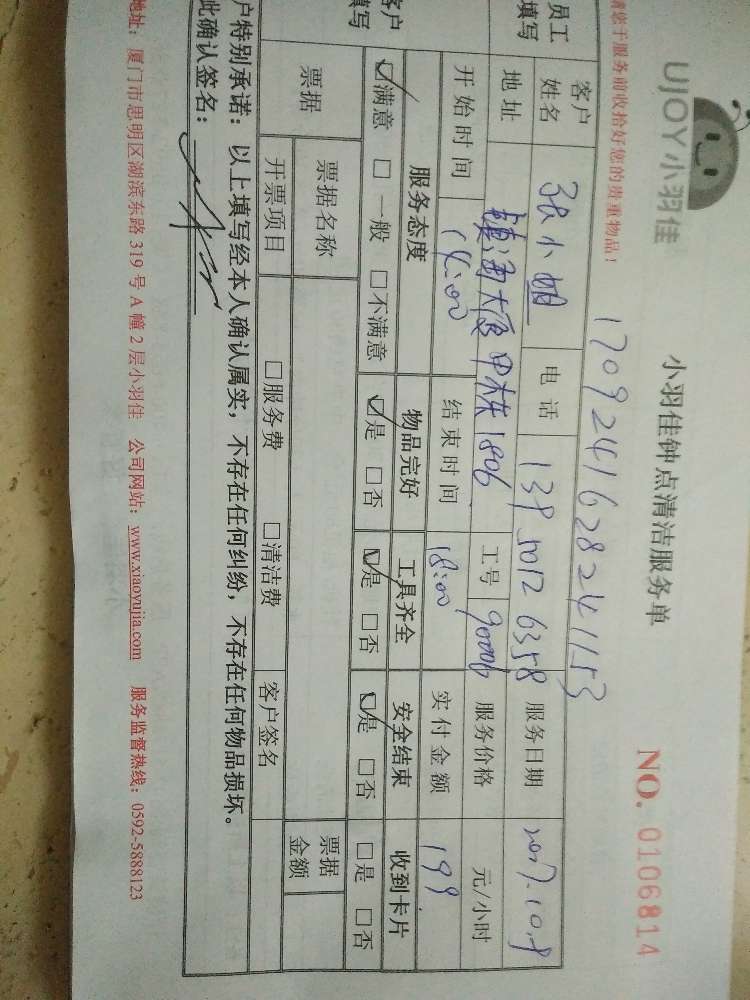 UJOY小羽佳
小羽佳钟点清洁服务单
NO. 0106814
请您于服务前收拾好您的贵重物品！
1709241628241153
员工填写 客户姓名 张小姐 电话 139 5012 6358 服务日期 2017.10.8
地址 镇海大厦甲栋1806 工号 90006 服务价格 元/小时
开始时间 14:00 结束时间 18:00 实付金额 199
客户填写 服务态度 物品完好 工具齐全 安全结束 收到卡片
☑满意 □一般 □不满意 ☑是 □否 ☑是 □否 ☑是 □否 □是 □否
票据 票据名称 票据金额
开票项目 □服务费 □清洁费 客户签名
户特别承诺：以上填写经本人确认属实，不存在任何纠纷，不存在任何物品损坏。
此确认签名：
地址：厦门市思明区湖滨东路 319 号 A 幢 2 层小羽佳 公司网站：www.xiaoyujia.com 服务监督热线：0592-5888123